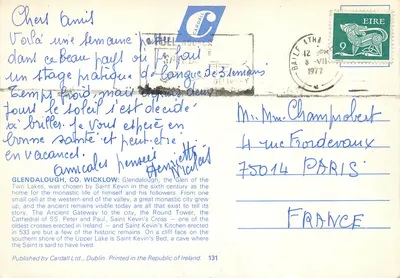 Chers amis
Voilà une semaine passée
dans ce beau pays où je fais
un stage pratique de langue de 3 semaines
Temps froid, mais depuis deux
jours le soleil s'est décidé
à briller. Je vous espère en
bonne santé et peut-être
en vacances.
amicales pensées
GLENDALOUGH, CO. WICKLOW: Glendalough, the Glen of the
Two Lakes, was chosen by Saint Kevin in the sixth century as the
home for the monastic life of himself and his followers. From one
small settlement at the western end of the valley, a great monastic city grew
up, and the ancient remains visible today are all that exist to tell its
story. The Ancient Gateway to the city, the Round Tower, the
Cathedral of SS. Peter and Paul, Saint Kevin's Cross — one of the
oldest crosses erected in Ireland — and Saint Kevin's Kitchen erected
in 533 are but a few of the historic remains. On a cliff face on the
southern shore of the Upper Lake is Saint Kevin's Bed, a cave where
the Saint is said to have lived
Published by Cardall Ltd., Dublin. Printed in the Republic of Ireland. 131
CARDALL
BAILE ÁTHA
12
8 -VII
1977
EIRE
9
M. Mme Champrobert
4 rue Froidevaux
75014 PARIS
FRANCE